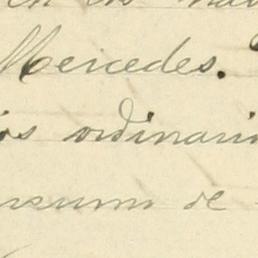 Mercedes.
os ordinario
nsumo de